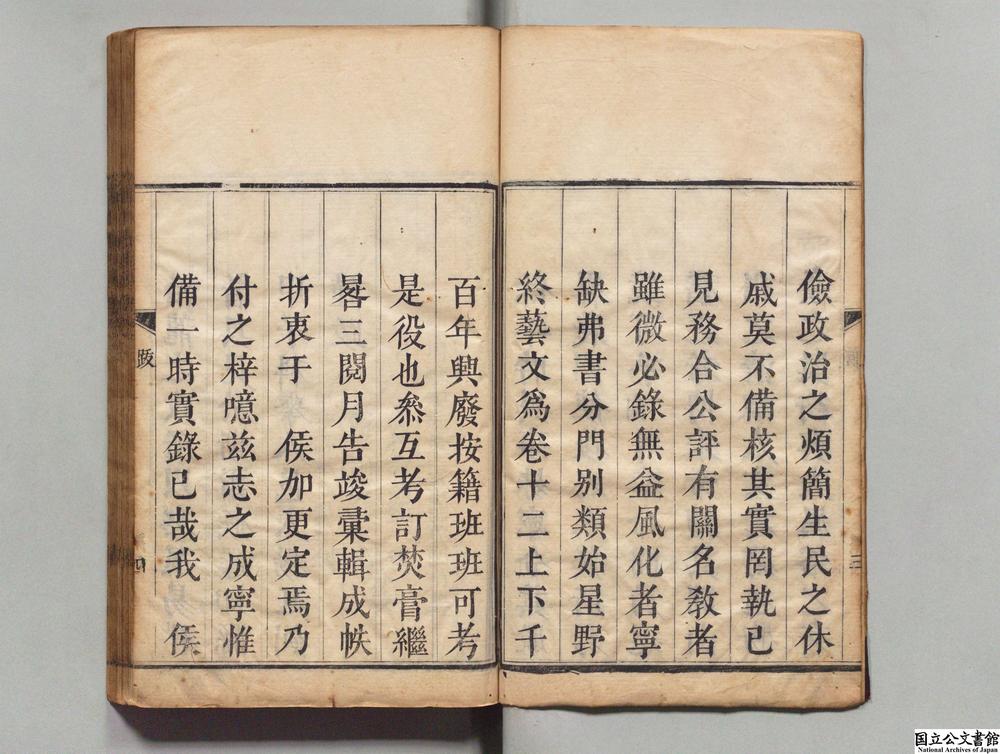 儉政治之煩簡生民之休
戚莫不備核其實罔執己
見務合公評有關名敎者
雖微必錄無益風化者寧
缺弗書分門別類始星野
終藝文爲卷十二上下千
百年興廢按籍班班可考
是役也叅互考訂焚膏繼
晷三閱月告竣彙輯成帙
折衷于 侯加更定焉乃
付之梓噫兹志之成寧惟
備一時實錄已哉我 侯
跋
三
四
国立公文書館
National Archives of Japan